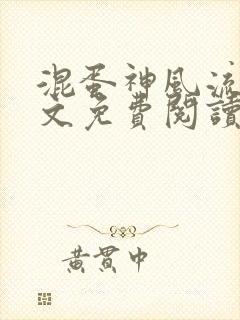 混蛋神風流
文免費閱讀
黃貫中